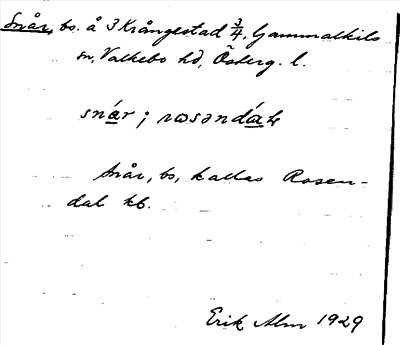 Snår, bs. å 3 Krångestad 3/4, Gammalkils
sn, Valkebo hd, Österg. l.
snár; rosəndáɫ
Snår, bs, kallas Rosen-
dal kb.
Erik Alm 1929